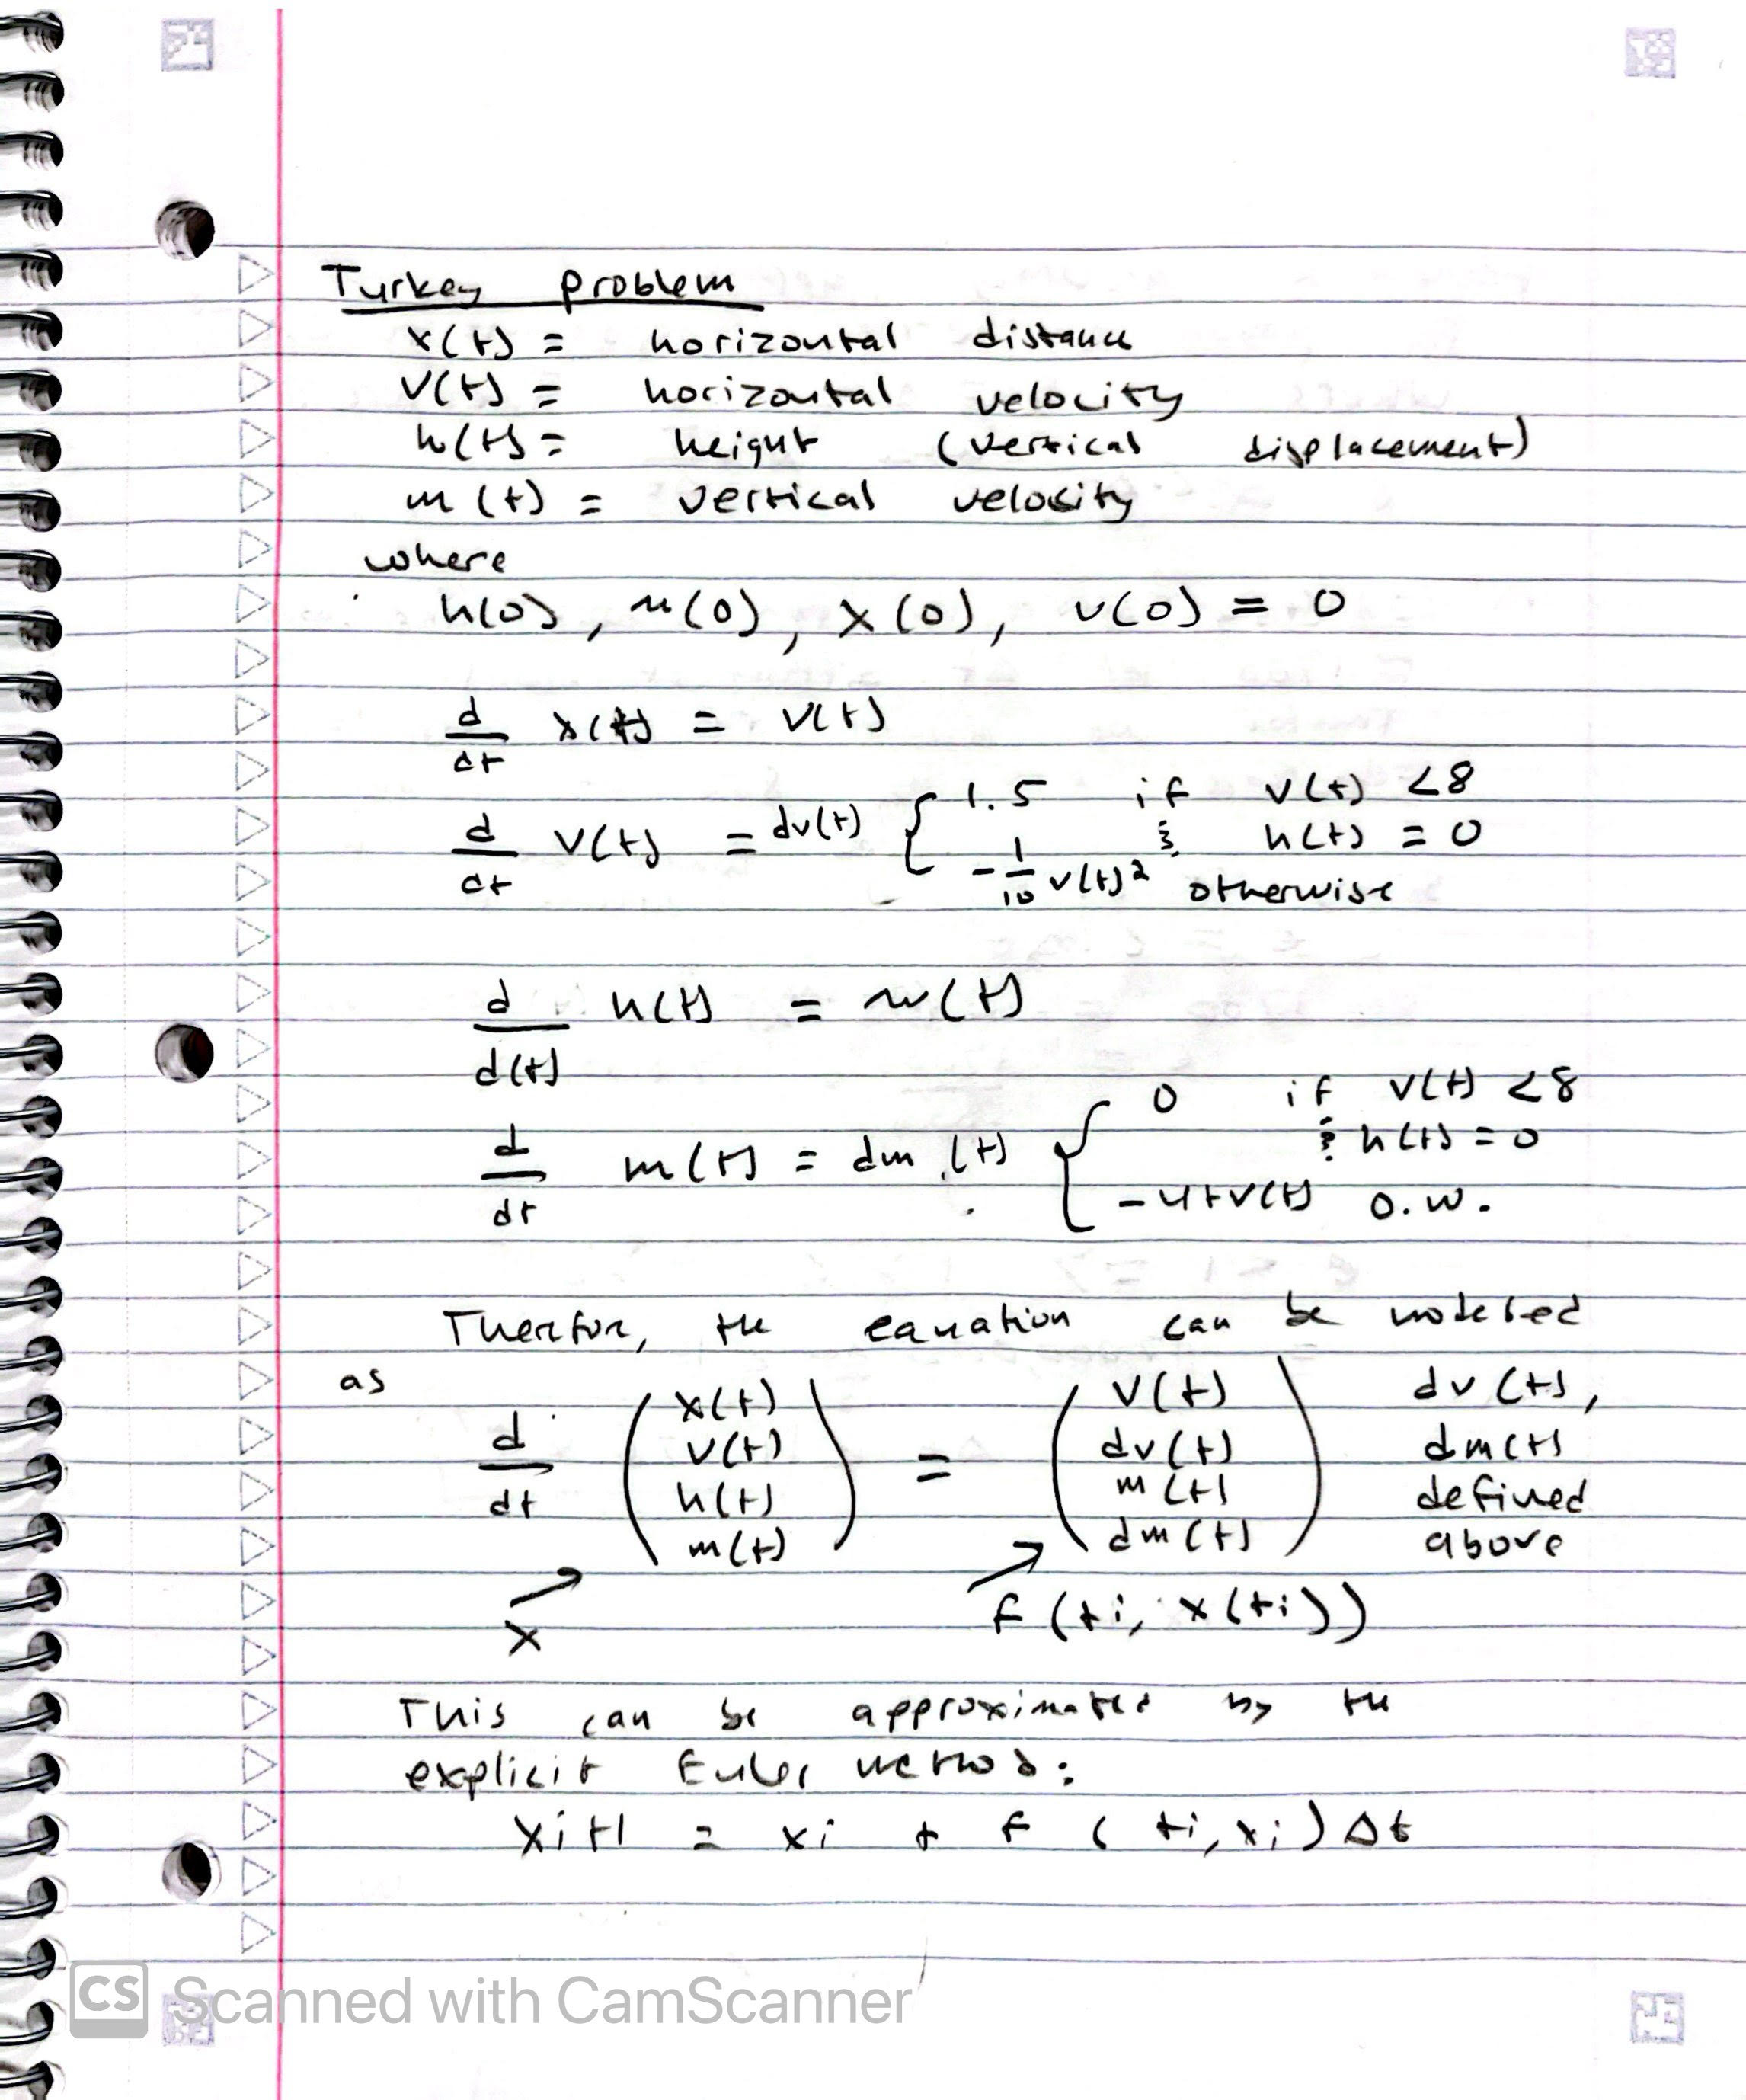 Turkey problem
x(t) = horizontal distance
v(t) = horizontal velocity
h(t) = height (vertical displacement)
m(t) = vertical velocity
where
h(0), m(0), x(0), v(0) = 0
d/dt x(t) = v(t)
d/dt v(t) = dv(t) { 1.5 if v(t) < 8 & h(t) = 0
-1/10 v(t)² otherwise
d/d(t) h(t) = m(t)
d/dt m(t) = dm(t) { 0 if v(t) < 8 & h(t) = 0
-4+v(t) o.w.
Therfor, the equation can be modeled
as
d/dt ( x(t) v(t) h(t) m(t) ) = ( v(t) dv(t) m(t) dm(t) ) dv(t), dm(t) defined above
x
f(ti, x(ti))
This can be approximated by the
explicit Euler method:
xi+1 = xi + f (ti, xi) Δt
CS Scanned with CamScanner